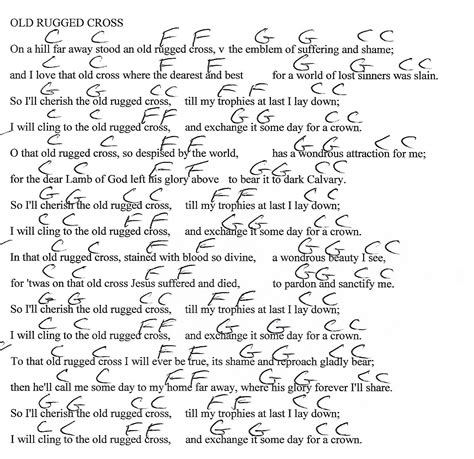 OLD RUGGED CROSS
C C F F G G C C
On a hill far away stood an old rugged cross, v the emblem of suffering and shame;
C C F F G G C C
and I love that old cross where the dearest and best for a world of lost sinners was slain.
G G C C F F C C
So I'll cherish the old rugged cross, till my trophies at last I lay down;
C C F F G G C C
I will cling to the old rugged cross, and exchange it some day for a crown.
C C F F G G C C
O that old rugged cross, so despised by the world, has a wondrous attraction for me;
C C F F G G C C
for the dear Lamb of God left his glory above to bear it to dark Calvary.
G G C C F F C C
So I'll cherish the old rugged cross, till my trophies at last I lay down;
C C F F G G C C
I will cling to the old rugged cross, and exchange it some day for a crown.
C C F F G G C C
In that old rugged cross, stained with blood so divine, a wondrous beauty I see,
C C F F G G C C
for 'twas on that old cross Jesus suffered and died, to pardon and sanctify me.
G G C C F F C C
So I'll cherish the old rugged cross, till my trophies at last I lay down;
C C F F G G C C
I will cling to the old rugged cross, and exchange it some day for a crown.
C C F F G G C C
To that old rugged cross I will ever be true, its shame and reproach gladly bear;
C C F F G G C C
then he'll call me some day to my home far away, where his glory forever I'll share.
G G C C F F C C
So I'll cherish the old rugged cross, till my trophies at last I lay down;
C C F F G G C C
I will cling to the old rugged cross, and exchange it some day for a crown.